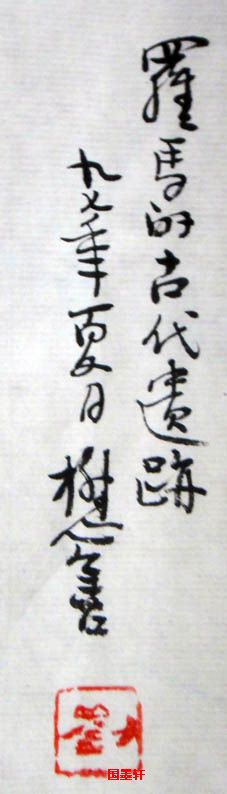 羅馬的古代遺跡
九七年夏日 樹
国墨轩